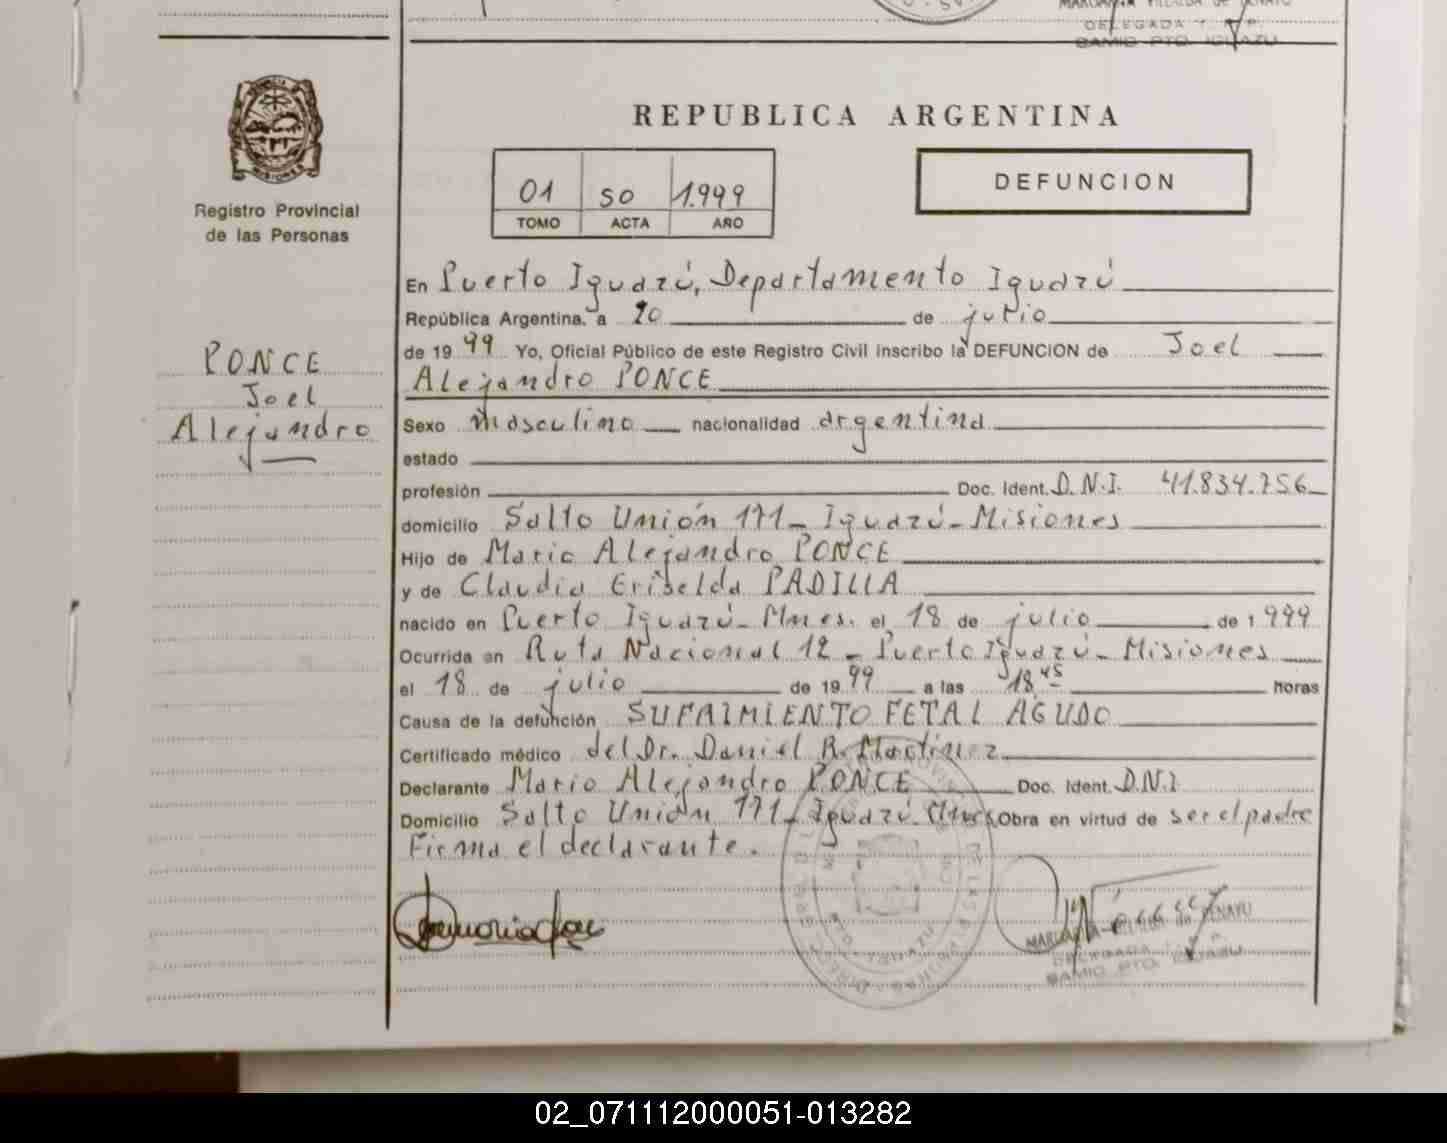 DELEGADA
SAMIC PTO. IGUAZU
MISIONES
Registro Provincial
de las Personas
REPUBLICA ARGENTINA
01 50 1.999
TOMO ACTA AÑO
DEFUNCION
PONCE
Joel
Alejandro
En Puerto Iguazú, Departamento Iguazú
República Argentina, a 20 de julio
de 1999 Yo, Oficial Público de este Registro Civil inscribo la DEFUNCION de Joel
Alejandro PONCE
Sexo masculino nacionalidad argentina
estado
profesión Doc. Ident. D.N.I. 41.834.756
domicilio Salto Unión 171 - Iguazú - Misiones
Hijo de Mario Alejandro PONCE
y de Claudia Griselda PADILLA
nacido en Puerto Iguazú - Mnes. el 18 de julio de 1999
Ocurrida en Ruta Nacional 12 - Puerto Iguazú - Misiones
el 18 de julio de 1999 a las 18 45 horas
Causa de la defunción SUFRIMIENTO FETAL AGUDO
Certificado médico del Dr. Daniel R. Martinez
Declarante Mario Alejandro PONCE Doc. Ident. D.N.I.
Domicilio Salto Unión 171 - Iguazú Mnes Obra en virtud de ser el padre
Firma el declarante.
DELEGADA
SAMIC PTO. IGUAZU
02_071112000051-013282